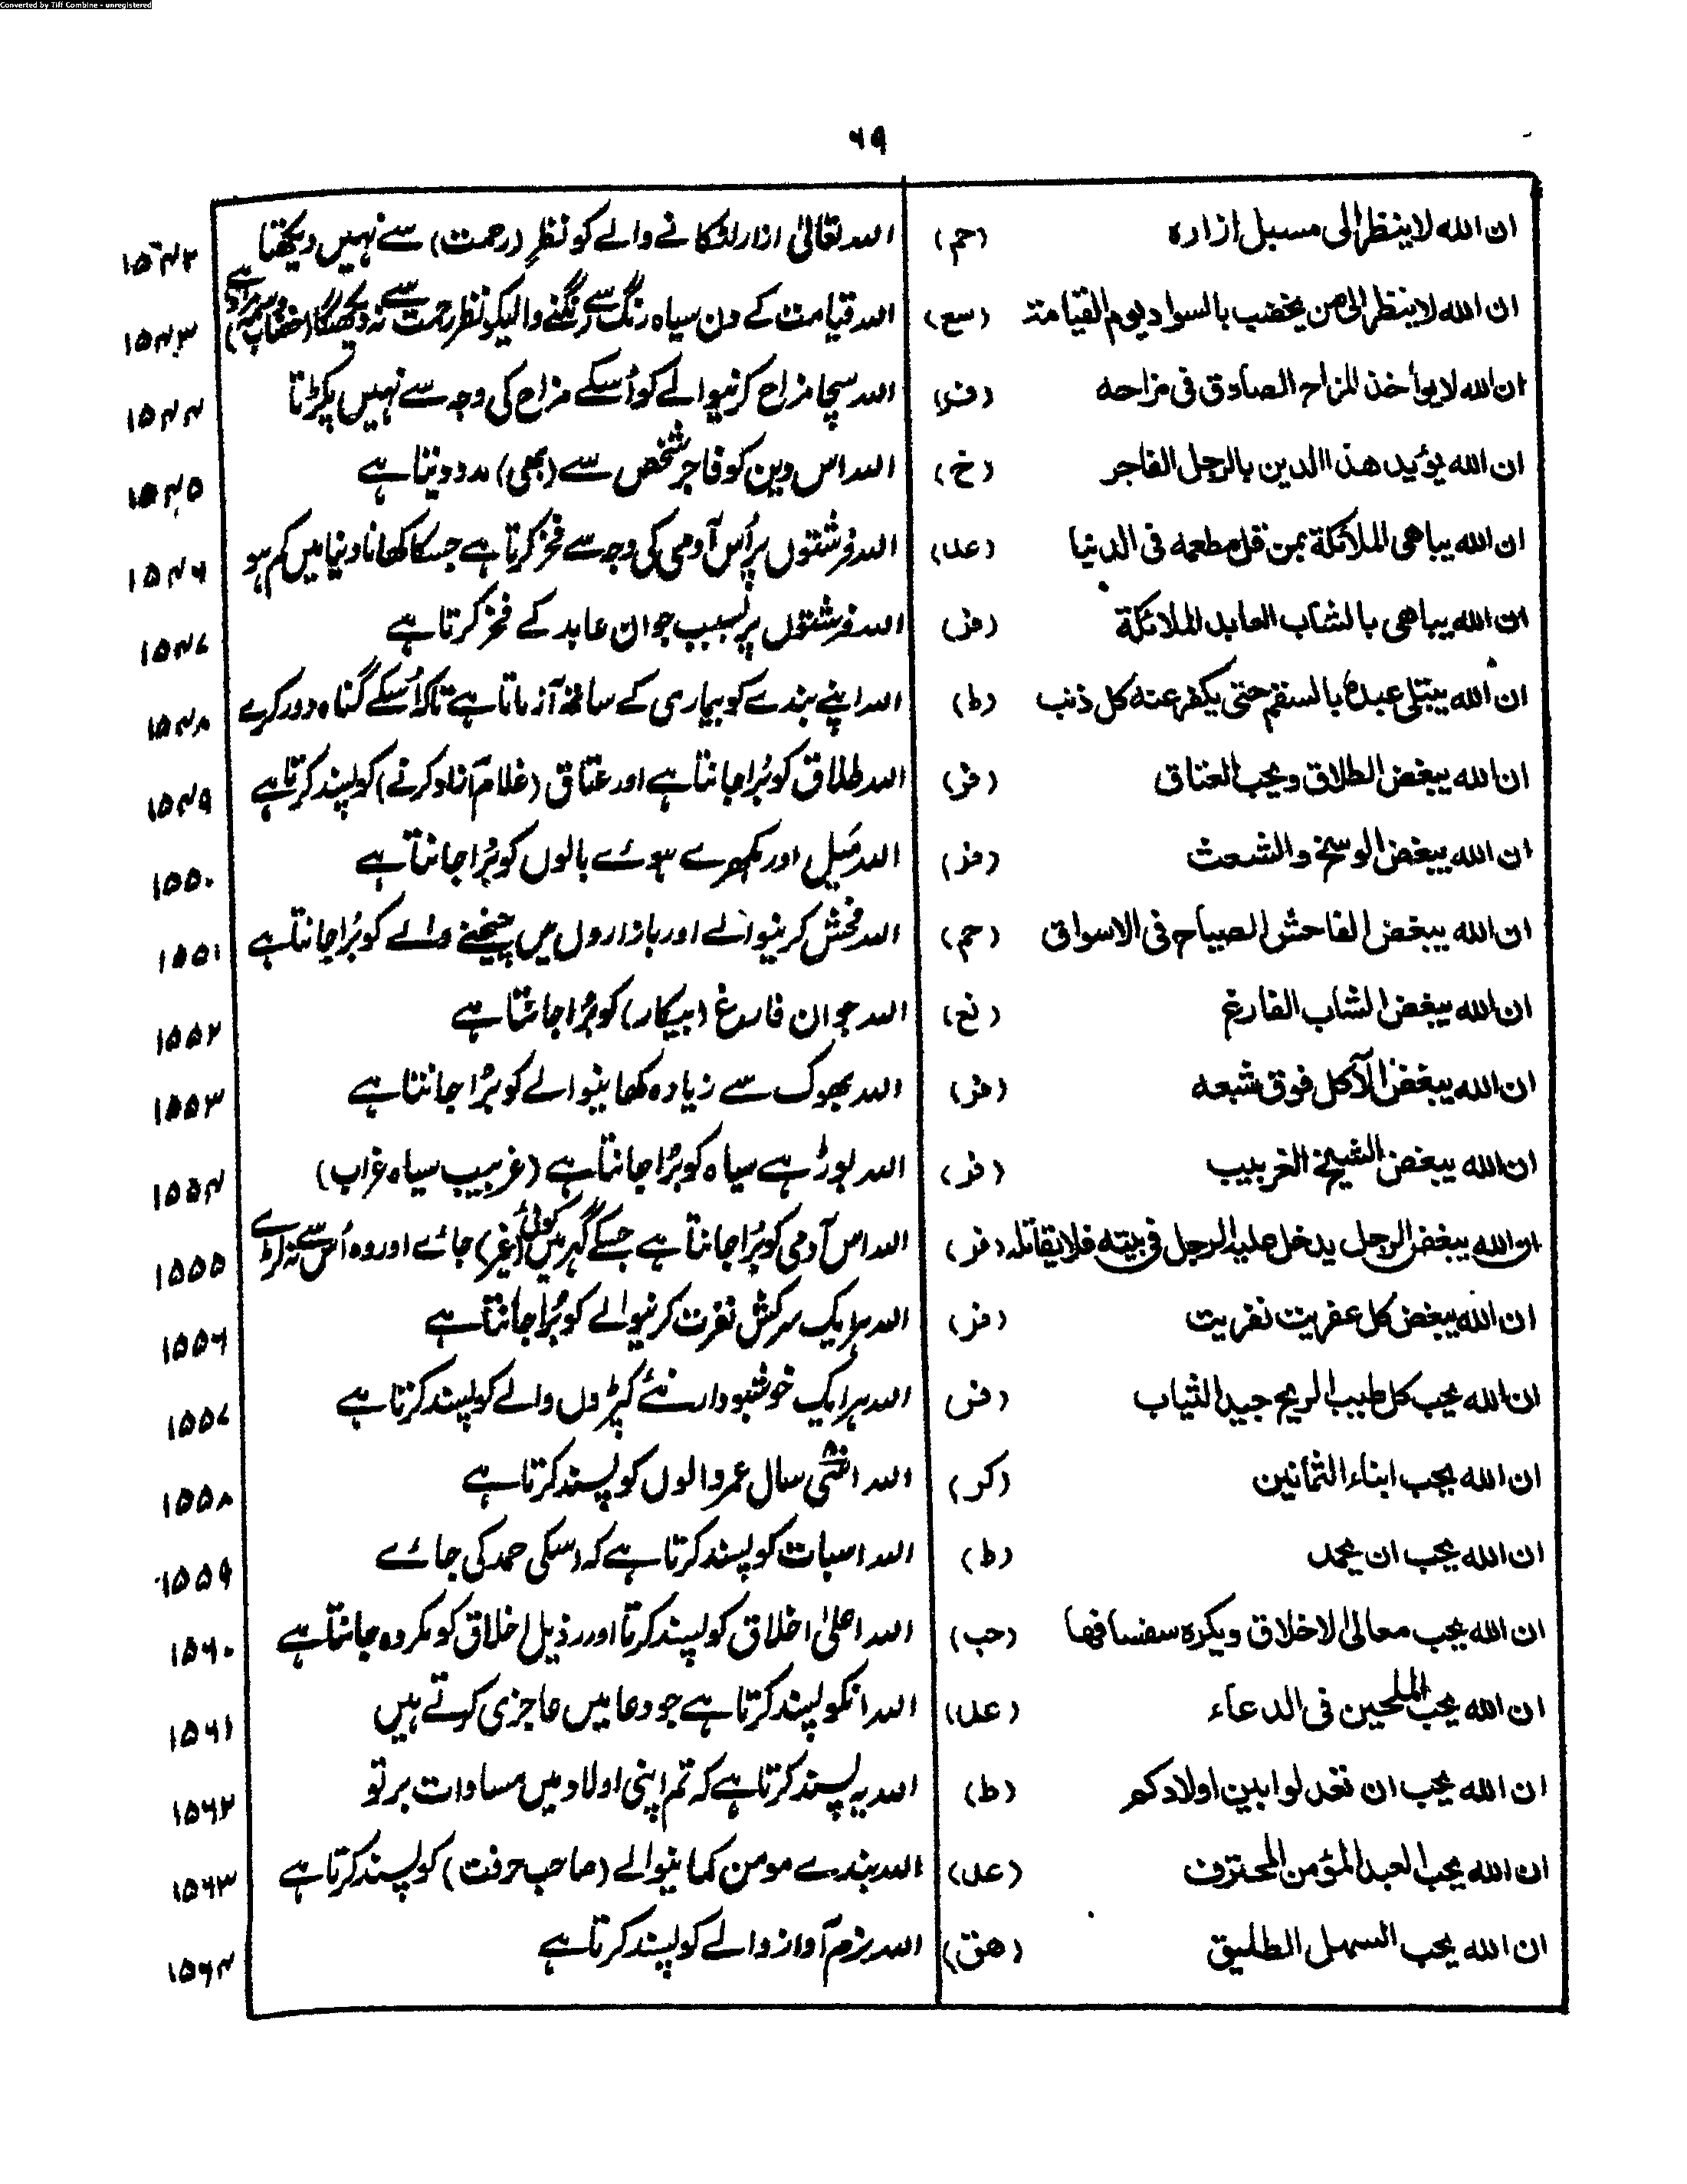 Converted by Tiff Combine - unregistered
۶۹
ان الله لا ينظر الى مسبل ازاره (حم) اللہ تعالیٰ ازار لٹکانے والے کو نظرِ (رحمت) سے نہیں دیکھتا ہے ۱۵۴۲
ان الله لا ينظر الى من يخضب بالسواد يوم القيامة (سع) اللہ قیامت کے دن سیاہ رنگ سے رنگنے والیکو نظر رحمت سے نہ دیکھیگا ۱۵۴۳
ان الله لا يوأخذ المزاح الصادق فى مزاحه (فر) اللہ سچا مزاح کرنیوالے کو اُسکے مزاح کی وجہ سے نہیں پکڑتا ۱۵۴۴
ان الله يؤيد هذا الدين بالرجل الفاجر (خ) اللہ اس دین کو فاجر شخص سے (بھی) مدد دیتا ہے ۱۵۴۵
ان الله يباهى الملائكة بمن قل مطعمه فى الدنيا (عد) اللہ فرشتوں پر اُس آدمی کی وجہ سے فخر کرتا ہے جسکا کھانا دنیا میں کم ہو ۱۵۴۶
ان الله يباهى بالشاب العابد الملائكة (فر) اللہ فرشتوں پر بسبب جوان عابد کے فخر کرتا ہے ۱۵۴۷
ان الله يبتلى عبده بالسقم حتى يكفر عنه كل ذنب (ط) اللہ اپنے بندے کو بیماری کے ساتھ آزماتا ہے تاکہ اُسکے گناہ دور کرے ۱۵۴۸
ان الله يبغض الطلاق ويحب العتاق (فر) اللہ طلاق کو بُرا جانتا ہے اور عتاق (غلام آزاد کرنے) کو پسند کرتا ہے ۱۵۴۹
ان الله يبغض الوسخ والشعث (فر) اللہ مَیل اور بکھرے ہوئے بالوں کو بُرا جانتا ہے ۱۵۵۰
ان الله يبغض الفاحش الصياح فى الاسواق (حم) اللہ فحش کرنیوالے اور بازاروں میں چیخنے والے کو بُرا جانتا ہے ۱۵۵۱
ان الله يبغض الشاب الفارغ (نخ) اللہ جوان فارغ (بیکار) کو بُرا جانتا ہے ۱۵۵۲
ان الله يبغض الآكل فوق شبعه (فر) اللہ بھوک سے زیادہ کھانیوالے کو بُرا جانتا ہے ۱۵۵۳
ان الله يبغض الشيخ الغربيب (فر) اللہ بوڑہے سیاہ کو بُرا جانتا ہے (غربیب سیاہ غراب) ۱۵۵۴
ان الله يبغض الرجل يدخل عليه الرجل فى بيته فلا يقاتله (فر) اللہ اس آدمی کو بُرا جانتا ہے جسکے گہر میں کوئی (غیر) جائے اور وہ اُس سے نہ لڑے ۱۵۵۵
ان الله يبغض كل عفريت نفريت (فر) اللہ ہرایک سرکش نفرت کرنیوالے کو بُرا جانتا ہے ۱۵۵۶
ان الله يحب كل طيب الريح جيد الثياب (فر) اللہ ہرایک خوشبودار نئے کپڑوں والے کو پسند کرتا ہے ۱۵۵۷
ان الله يحب ابناء الثمانين (كر) اللہ اسّی ۸۰ سال عمر والوں کو پسند کرتا ہے ۱۵۵۸
ان الله يحب ان يحمد (ط) اللہ اسبات کو پسند کرتا ہے کہ اسکی حمد کی جائے ۱۵۵۹
ان الله يحب معالى الاخلاق ويكره سفسافها (حب) اللہ اعلیٰ اخلاق کو پسند کرتا اور رذیل اخلاق کو مکروہ جانتا ہے ۱۵۶۰
ان الله يحب الملحين فى الدعاء (عد) اللہ انکو پسند کرتا ہے جو دعا میں عاجزی کرتے ہیں ۱۵۶۱
ان الله يحب ان تعدلوا بين اولادكم (ط) اللہ یہ پسند کرتا ہے کہ تم اپنی اولاد میں مساوات برتو ۱۵۶۲
ان الله يحب العبد المؤمن المحترف (عد) اللہ بندے مومن کمانیوالے (صاحب حرفت) کو پسند کرتا ہے ۱۵۶۳
ان الله يحب السهل الطليق (هق) اللہ نرم آواز والے کو پسند کرتا ہے ۱۵۶۴